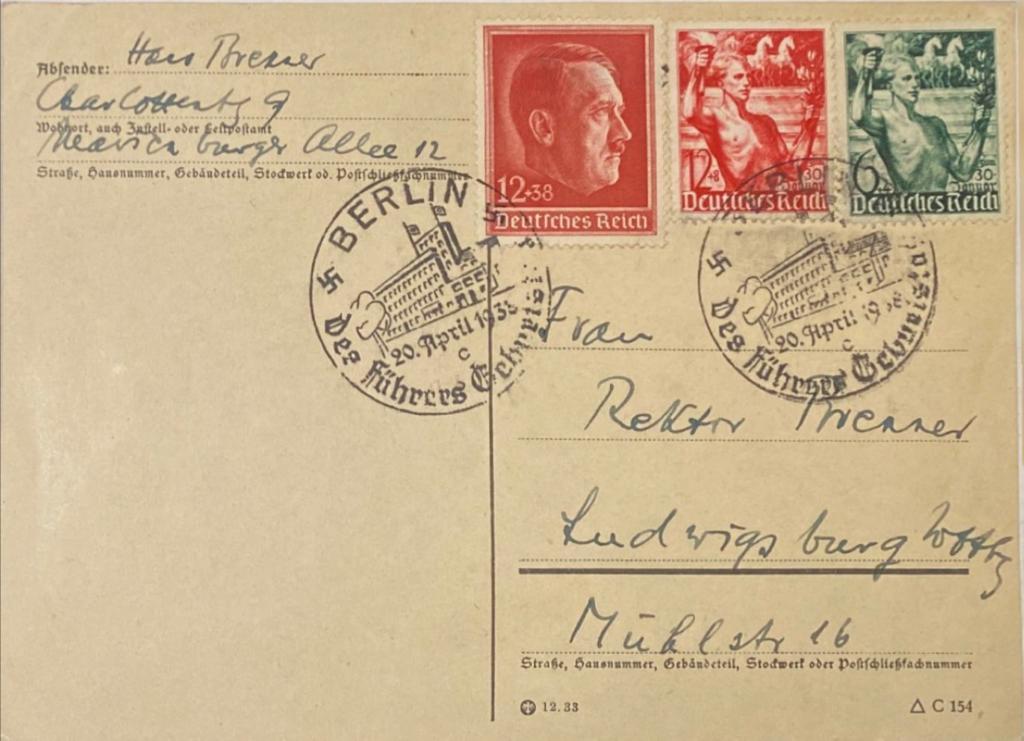 Absender: Hans Bresser
Charlottenbg 9
Wohnort, auch Zustell- oder Leitpostamt
Marienburger Allee 12
Straße, Hausnummer, Gebäudeteil, Stockwerk od. Postschließfachnummer
12+38
Deutsches Reich
12+8
30.
Januar
Deutsches Reich
6
30.
Januar
Deutsches Reich
BERLIN
20. April 1938
c
Des Führers Geburtstag
20. April 1938
c
Des Führers Geburtstag
Frau
Rektor Bresser
Ludwigsburg Wttbg
Mühlstr 16
Straße, Hausnummer, Gebäudeteil, Stockwerk oder Postschließfachnummer
12.33
C 154